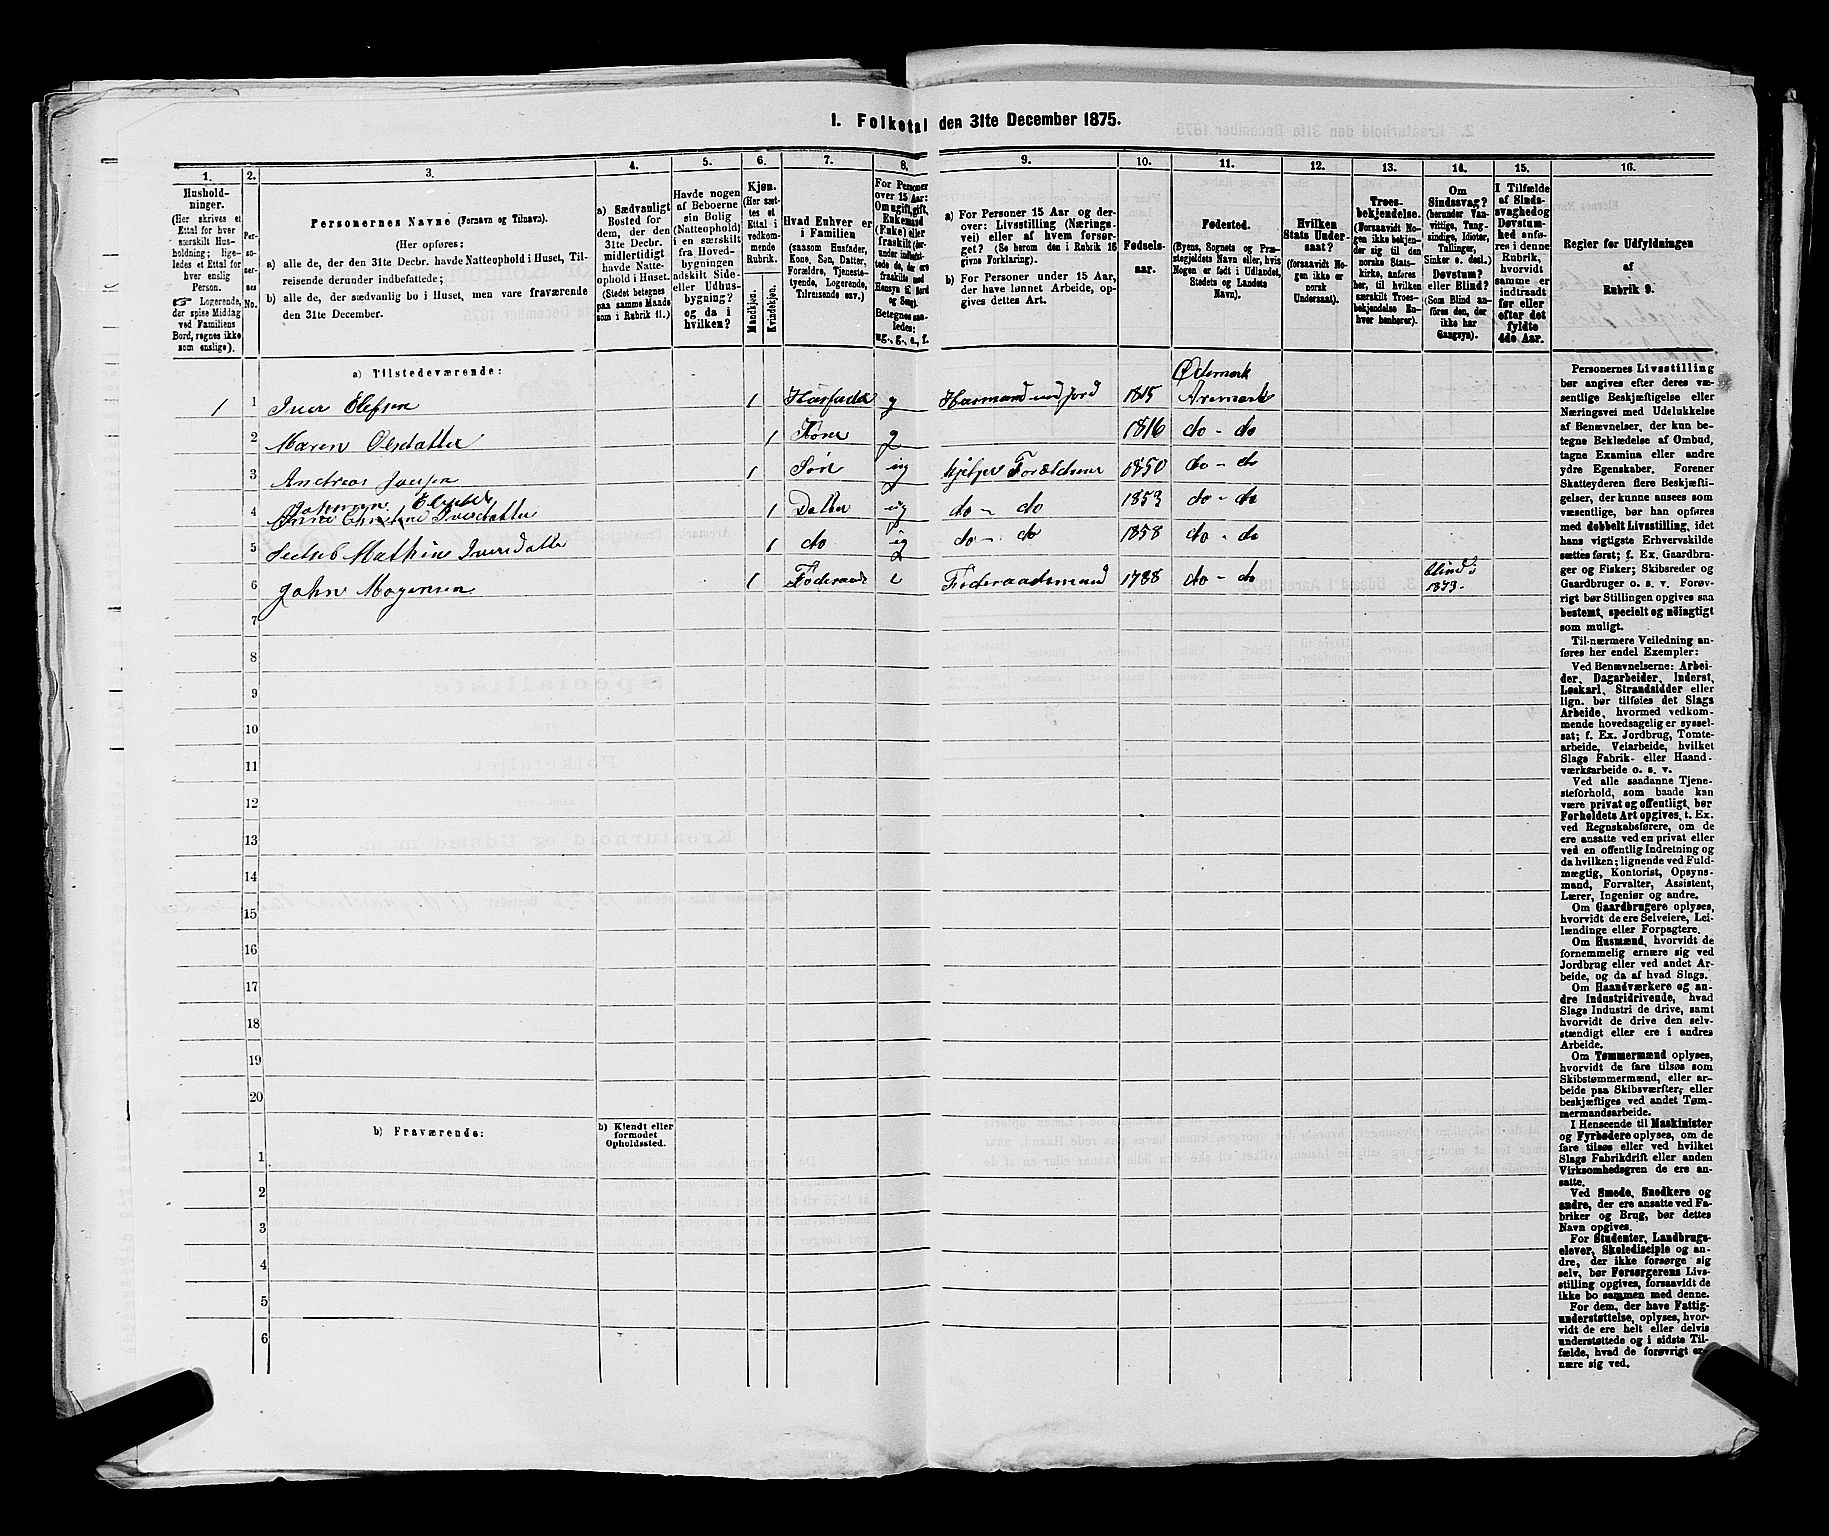 1. Folketal den 31te December 1875.
1. 2. 3. 4. 5. 6. 7. 8. 9. 10. 11. 12. 13. 14. 15. 16.
Hushold-
ninger.
(Her skrives et
Ettal for hver
særskilt Hus-
holdning; lige-
ledes et Ettal for
hver enslig
Person.
Logerende,
der spise Middag
ved Familiens
Bord, regnes ikke
som enslige).
Per-
so-
ner-
nes
No.
Personernes Navne (Fornavn og Tilnavn).
(Her opføres:
a) alle de, der den 31te Decbr. havde Natteophold i Huset, Til-
reisende derunder indbefattede;
b) alle de, der sædvanlig bo i Huset, men vare fraværende
den 31te December.
a) Sædvanligt
Bosted for
dem, der den
31te Decbr.
midlertidigt
havde Natte-
ophold i Huset.
(Stedet betegnes
paa samme Maade
som i Rubrik 11.)
Havde nogen
af Beboerne
sin Bolig
(Natteophold)
i en særskilt
fra Hoved-
bygningen
adskilt Side-
eller Udhus-
bygning?
og da i
hvilken?
Kjøn.
(Her sæt-
tes et
Ettal i
vedkom-
mende
Rubrik.
Mandkjøn.
Kvindekjøn.
Hvad Enhver er
i Familien
(saasom Husfader,
Kone, Søn, Datter,
Forældre, Tjeneste-
tyende, Logerende,
Tilreisende osv.)
For Personer
over 15 Aar:
Om ugift, gift,
Enkemand
(Enke) eller
fraskilt
Betegnes saa-
ledes:
ug., g., e., f.
a) For Personer 15 Aar og der-
over: Livsstilling (Nærings-
vei) eller af hvem forsør-
get? (Se herom den i Rubrik 16
givne Forklaring).
b) For Personer under 15 Aar,
der have lønnet Arbeide, op-
gives dettes Art.
Fødsels-
aar.
Fødested.
(Byens, Sognets og Præ-
stegjeldets Navn eller, hvis
Nogen er født i Udlandet,
Stedets og Landets
Navn).
Hvilken
Stats Under-
saat?
(forsaavidt No-
gen ikke er
norsk
Undersaat).
Troes-
bekjendelse.
(Forsaavidt No-
gen ikke bekjen-
der sig til den
norske Stats-
kirke, anføres
her, til hvilken
særskilt Troes-
bekjendelse En-
hver henhører).
Om
Sindssvag?
(herunder Van-
vittige, Tung-
sindige, Idioter,
Tullinger,
Sinker o. desl.)
Døvstum?
eller Blind?
(Som Blind an-
føres den, der
ikke har
Gangsyn).
I Tilfælde
af Sinds-
svaghed og
Døvstum-
hed anfø-
res i denne
Rubrik,
hvorvidt
samme er
indtraadt
før eller
efter det
fyldte
4de Aar.
Regler for Udfyldningen
af
Rubrik 9.
a) Tilstedeværende:
Ødemark
1 1 Iver Olefsen 1 Husfader g Husmand med jord 1815 Aremark
2 Maren Olsdatter 1 Kone g 1816 do - do
3 Andreas Iversen 1 Søn ug hjelper Forældrene 1850 do - do
4 Anne Christine Iversdatter 1 Datter ug do - do 1853 do - do
5 Mathine Iversdatter 1 do ug do - do 1858 do - do
6 John Mogensen 1 Føderaad e Føderaadsmand 1788 do - do Blind i
1873.
7
8
9
10
11
12
13
14
15
16
17
18
19
20
b) Fraværende:
b) Kjendt eller
formodet
Opholdssted.
1
2
3
4
5
6
Personernes Livsstilling
bør angives efter deres væ-
sentlige Beskjæftigelse eller
Næringsvei med Udelukkelse
af Benævnelser, der kun be-
tegne Beklædelse af Ombud,
tagne Examina eller andre
ydre Egenskaber. Forener
Skatteyderen flere Beskjæfti-
gelser, der kunne ansees som
væsentlige, bør han opføres
med dobbelt Livsstilling, idet
hans vigtigste Erhvervskilde
sættes først; f. Ex. Gaardbru-
ger og Fisker; Skibsreder og
Gaardbruger o. s. v. Forøv-
rigt bør Stillingen opgives saa
bestemt, specielt og nøiagtigt
som muligt.
Til nærmere Veiledning an-
føres her endel Exempler:
Ved Benævnelserne: Arbei-
der, Dagarbeider, Inderst,
Løskarl, Strandsidder eller
lign. bør tilføies det Slags
Arbeide, hvormed vedkom-
mende hovedsagelig er syssel-
sat; f. Ex. Jordbrug, Tomte-
arbeide, Veiarbeide, hvilket
Slags Fabrik- eller Haand-
værksarbeide o. s. v.
Ved alle saadanne Tjene-
steforhold, som baade kan
være privat og offentligt, bør
Forholdets Art opgives, t. Ex.
ved Regnskabsførere, om de
ere ansatte ved en privat eller
ved en offentlig Indretning og
da hvilken; lignende ved Fuld-
mægtig, Kontorist, Opsyns-
mand, Forvalter, Assistent,
Lærer, Ingeniør og andre.
Om Gaardbrugere oplyses,
hvorvidt de ere Selveiere, Lei-
lændinge eller Forpagtere.
Om Husmænd, hvorvidt de
fornemmelig ernære sig ved
Jordbrug eller ved andet Ar-
beide, og da af hvad Slags.
Om Haandværkere og an-
dre Industridrivende, hvad
Slags Industri de drive, samt
hvorvidt de drive den selv-
stændigt eller ere i andres
Arbeide.
Om Tømmermænd oplyses,
hvorvidt de fare tilsøs som
Skibstømmermænd, eller ar-
beide paa Skibsværfter, eller
beskjæftiges ved andet Tøm-
mermandsarbeide.
I Henseende til Maskinister
og Fyrbødere oplyses, om de
fare tilsøs eller ved hvilket
Slags Fabrikdrift eller anden
Virksomhedsgren de ere an-
satte.
Ved Smede, Snedkere og
andre, der ere ansatte ved Fa-
briker og Brug, bør dettes
Navn opgives.
For Studenter, Landbrugs-
elever, Skoledisciple og an-
dre, der ikke forsørge sig
selv, bør Forsørgerens Livs-
stilling opgives, forsaavidt de
ikke bo sammen med denne.
For dem, der have Fattig-
understøttelse, oplyses, hvor-
vidt de ere helt eller delvis
understøttede og i sidste Til-
fælde, hvad de forøvrigt er-
nære sig ved.